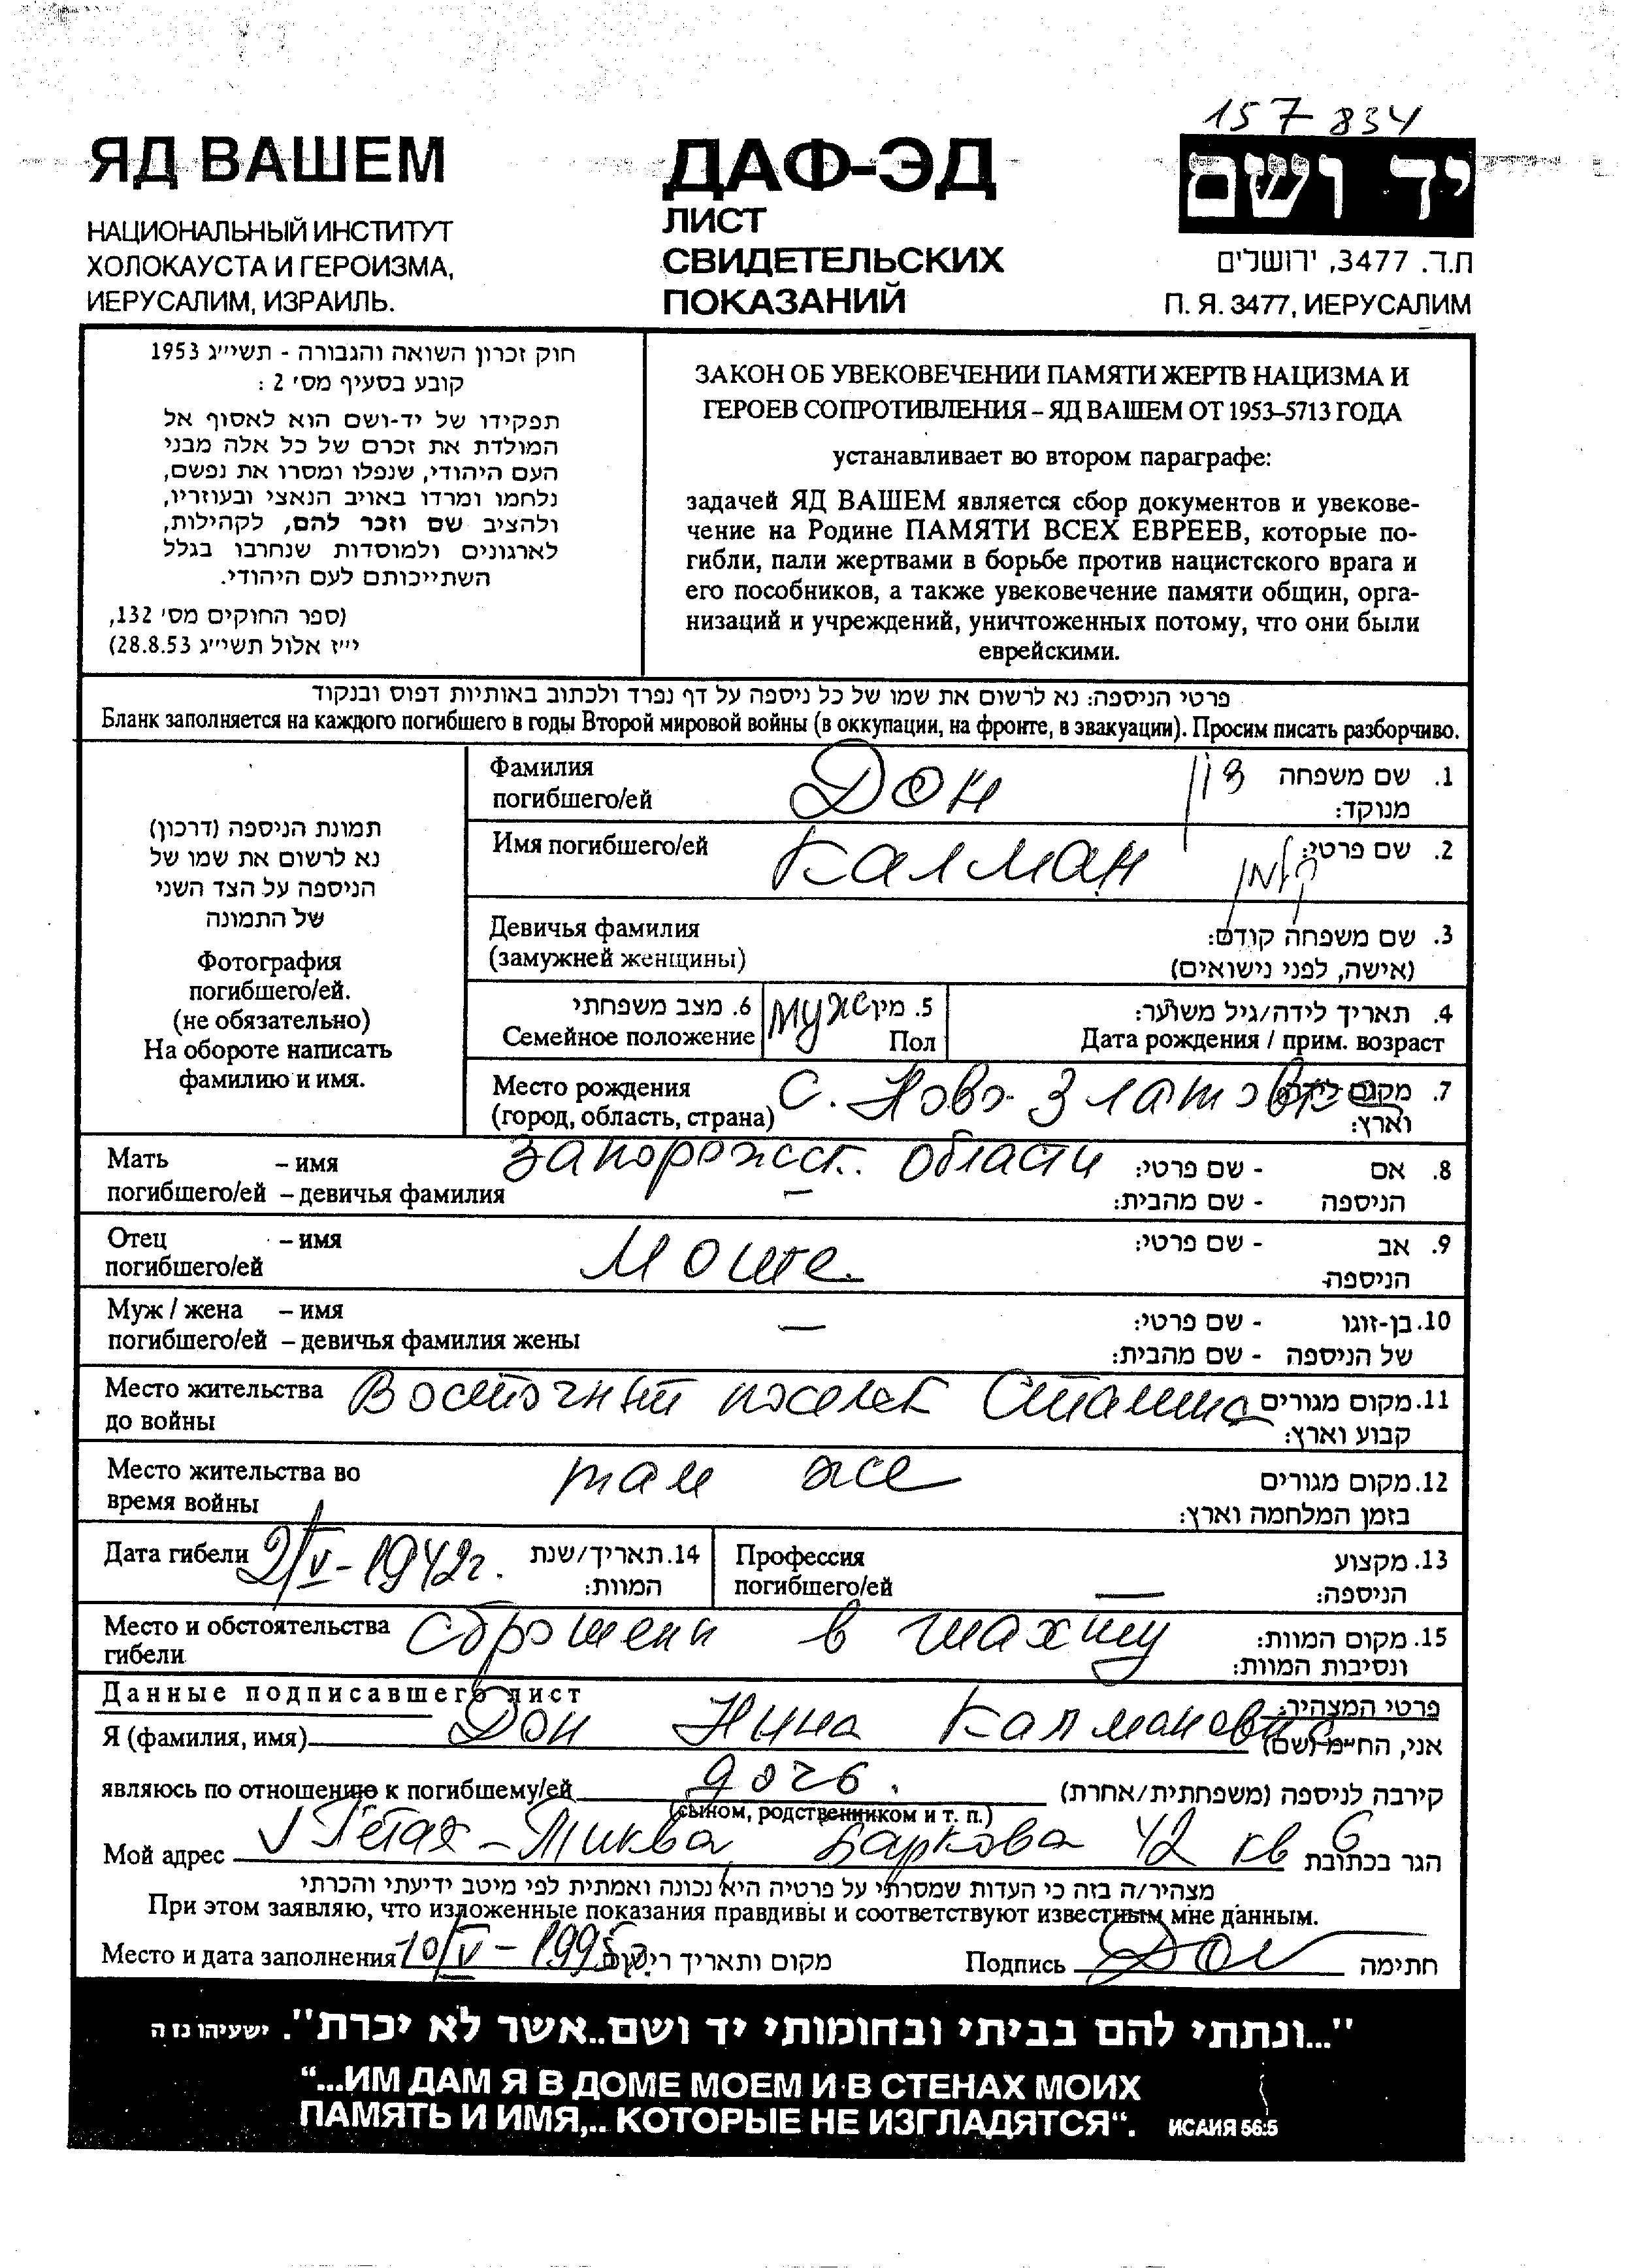 157834
ЯД ВАШЕМ
НАЦИОНАЛЬНЫЙ ИНСТИТУТ
ХОЛОКАУСТА И ГЕРОИЗМА,
ИЕРУСАЛИМ, ИЗРАИЛЬ.
ДАФ-ЭД
ЛИСТ
СВИДЕТЕЛЬСКИХ
ПОКАЗАНИЙ
יד ושם
ת.ד. 3477, ירושלים
П. Я. 3477, ИЕРУСАЛИМ
חוק זכרון השואה והגבורה - תשי״ג 1953
קובע בסעיף מס׳ 2 :
תפקידו של יד-ושם הוא לאסוף אל
המולדת את זכרם של כל אלה מבני
העם היהודי, שנפלו ומסרו את נפשם,
נלחמו ומרדו באויב הנאצי ובעוזריו,
ולהציב שם וזכר להם, לקהילות,
לארגונים ולמוסדות שנחרבו בגלל
השתייכותם לעם היהודי.
(ספר החוקים מס׳ 132,
י״ז אלול תשי״ג 28.8.53)
ЗАКОН ОБ УВЕКОВЕЧЕНИИ ПАМЯТИ ЖЕРТВ НАЦИЗМА И
ГЕРОЕВ СОПРОТИВЛЕНИЯ – ЯД ВАШЕМ ОТ 1953–5713 ГОДА
устанавливает во втором параграфе:
задачей ЯД ВАШЕМ является сбор документов и увекове-
чение на Родине ПАМЯТИ ВСЕХ ЕВРЕЕВ, которые по-
гибли, пали жертвами в борьбе против нацистского врага и
его пособников, а также увековечение памяти общин, орга-
низаций и учреждений, уничтоженных потому, что они были
еврейскими.
פרטי הניספה: נא לרשום את שמו של כל ניספה על דף נפרד ולכתוב באותיות דפוס ובנקוד
Бланк заполняется на каждого погибшего в годы Второй мировой войны (в оккупации, на фронте, в эвакуации). Просим писать разборчиво.
תמונת הניספה (דרכון)
נא לרשום את שמו של
הניספה על הצד השני
של התמונה
Фотография
погибшего/ей.
(не обязательно)
На обороте написать
фамилию и имя.
Фамилия Дон דון 1. שם משפחה
погибшего/ей מנוקד:
Имя погибшего/ей Калман קלמן 2. שם פרטי:
Девичья фамилия 3. שם משפחה קודם:
(замужней женщины) (אישה, לפני נישואים)
6. מצב משפחתי муж 5. מין 4. תאריך לידה/גיל משוער:
Семейное положение Пол Дата рождения / прим. возраст
Место рождения с. Ново-Златовка 7. מקום לידה
(город, область, страна) וארץ:
запорожск. области
Мать – имя - שם פרטי: 8. אם
погибшего/ей – девичья фамилия — - שם מהבית: הניספה
Отец – имя Моше. - שם פרטי: 9. אב
погибшего/ей הניספה
Муж / жена – имя — - שם פרטי: 10. בן-זוגו
погибшего/ей – девичья фамилия жены - שם מהבית: של הניספה
Место жительства Восточный поселек Сталино 11. מקום מגורים
до войны קבוע וארץ:
Место жительства во там же 12. מקום מגורים
время войны בזמן המלחמה וארץ:
Дата гибели 2/V-1942г. 14. תאריך/שנת Профессия 13. מקצוע
המוות: погибшего/ей — הניספה:
Место и обстоятельства сброшени в шахту 15. מקום המוות:
гибели ונסיבות המוות:
Данные подписавшего лист פרטי המצהיר:
Я (фамилия, имя) Дон Нина Калмановна אני, הח״מ (שם)
являюсь по отношению к погибшему/ей дочь. קירבה לניספה (משפחתית/אחרת)
(сыном, родственником и т. п.)
Мой адрес Петах-Тиква Баркова 42 кв 6 הגר בכתובת
מצהיר/ה בזה כי העדות שמסרתי על פרטיה היא נכונה ואמתית לפי מיטב ידיעתי והכרתי
При этом заявляю, что изложенные показания правдивы и соответствуют известным мне данным.
Место и дата заполнения 10/V-1995г. מקום ותאריך רישום Подпись Дон חתימה
"...ונתתי להם בביתי ובחומותי יד ושם..אשר לא יכרת". ישעיהו נז ה
“...ИМ ДАМ Я В ДОМЕ МОЕМ И В СТЕНАХ МОИХ
ПАМЯТЬ И ИМЯ,.. КОТОРЫЕ НЕ ИЗГЛАДЯТСЯ“. ИСАИЯ 56:5